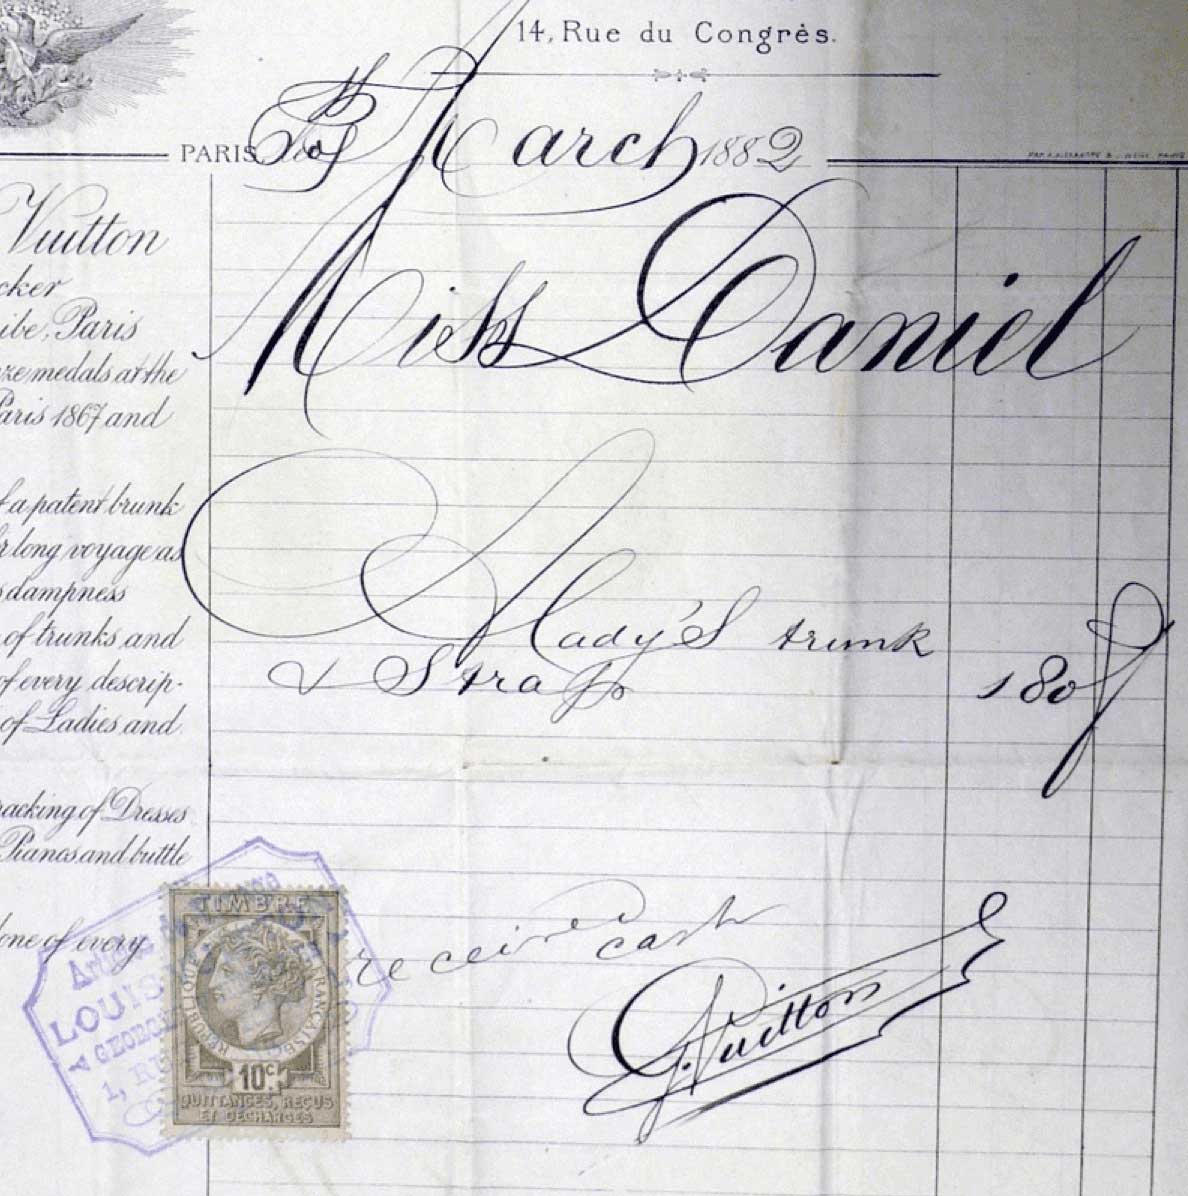 14, Rue du Congrès.
PARIS, March 1882
Miss Daniel
Vuitton
Paris
medals at the
Paris 1867 and
of a patent trunk
long voyage as
dampness
of trunks and
of every descrip-
of Ladies and
Packing of Dresses
Pianos and buttle
done of every
A lady's trunk
& Straps 180 f
received cash
G. Vuitton
LOUIS
A GEORGE
1, RU
TIMBRE
RÉPUBLIQUE FRANÇAISE
10c
QUITTANCES, REÇUS
ET DÉCHARGES